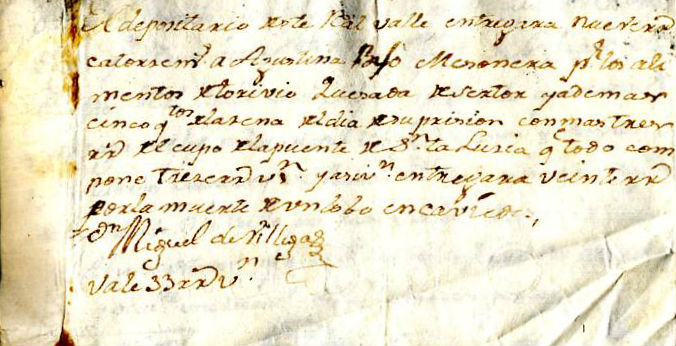 El depositario de este Real valle entregara nueve rr.
catorce ms. a Agustina Mesonera pr. los ali
mentos de torivio Quesada desertor y ademas
cinco qtos. de la cena del dia de su prision con mas tres
rr. del cupo de la puente de Sn.ta Lucia q. todo com
pone trece rr. vn. y asi mn. entregara veinte rr
por la muerte de un lobo en
Dn. Miguel de Villegas
Vale 33 rr. vn.